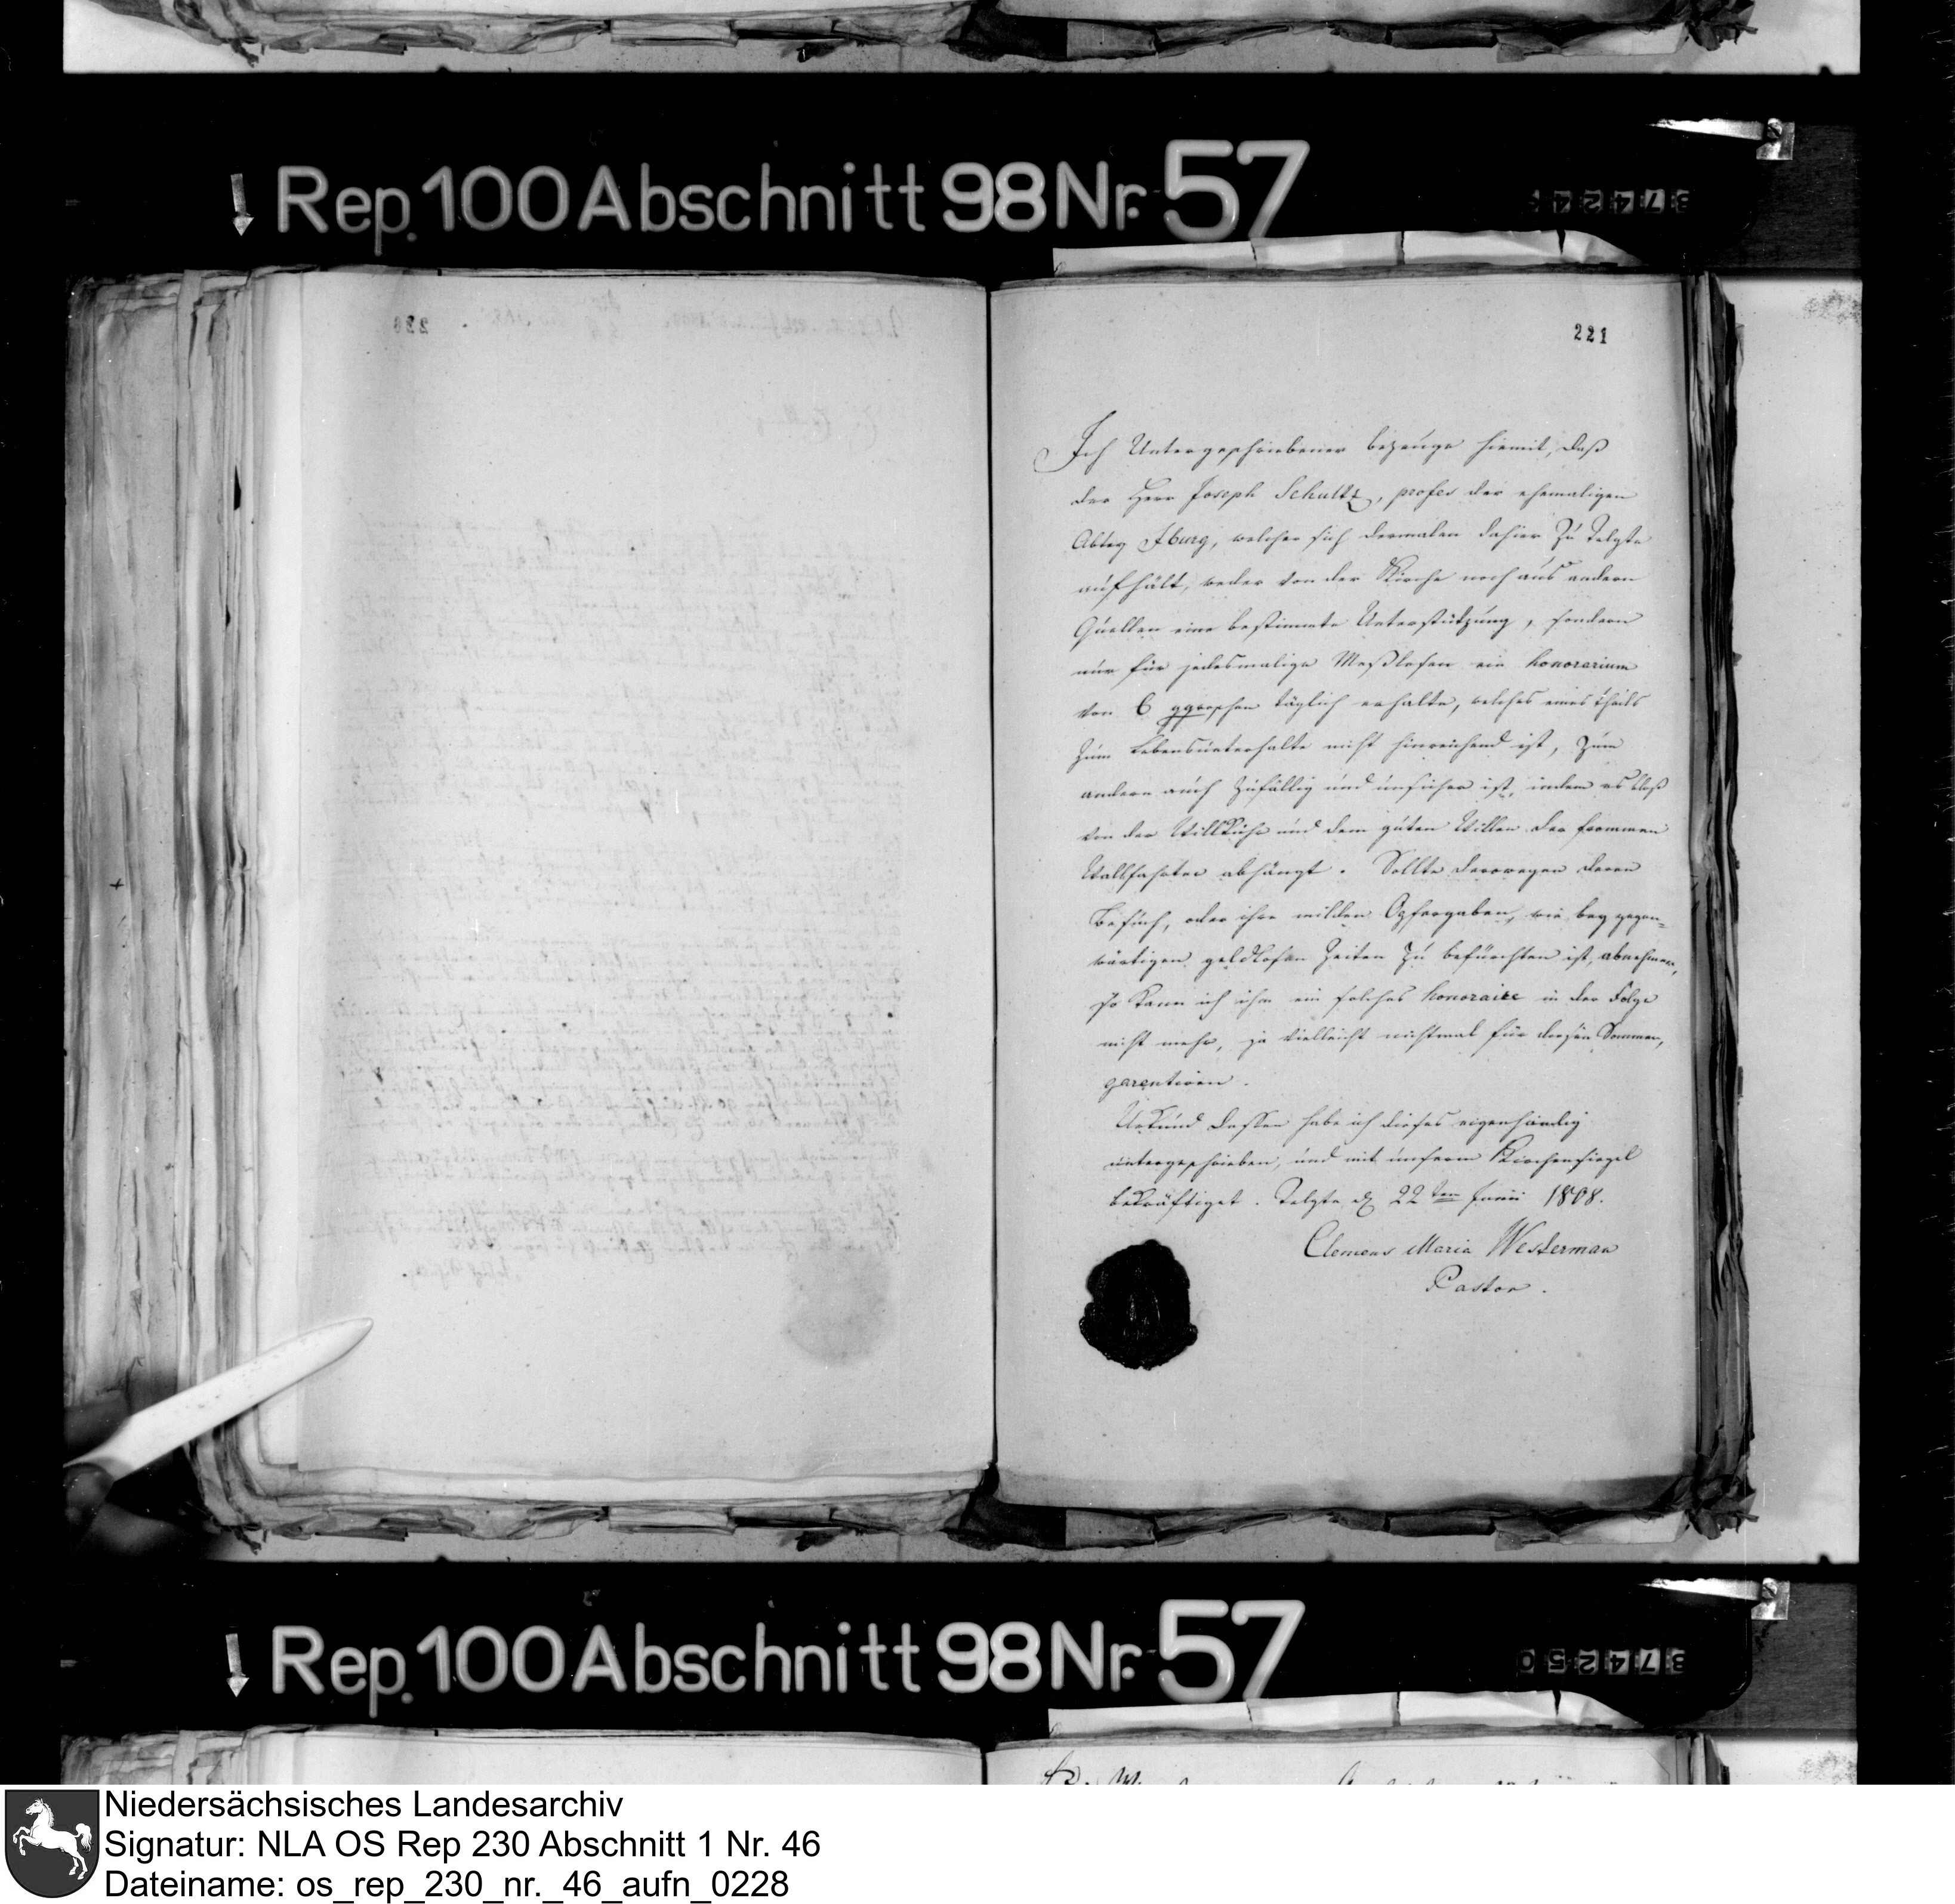 Rep. 100 Abschnitt 98 Nr. 57
221
Ich Untergeschriebener bezeuge hiemit, daß
der Herr Joseph Schultz, profes der ehemaligen
Abtey Iburg, welcher sich dermalen dahier zu Telgte
aufhält, weder von der Kirche noch aus andern
Quellen eine bestimmte Unterstützung, sondern
nur für jedesmalige Meßlesen ein honorarium
von 6 ggroschen täglich erhalte, welches eines theils
zum Lebensunterhalte nicht hinreichend ist, zum
andern auch zufällig und unsicher ist, indem es bloß
von der Willkühr und dem guten Willen der frommen
Wallfahrter abhängt. Sollte derowegen deren
Besuch, oder ihre milden Opfergaben, wie bey gegen-
wärtigen geldlosen Zeiten zu befürchten ist, abnehmen,
so kann ich ihm ein solches honoraire in der Folge
nicht mehr, ja vielleicht nichtmal für diesen Sommer,
garentiren.
Urkund dessen habe ich dieses eigenhändig
untergeschrieben, und mit unserm Kirchensiegel
bekräftiget. Telgte d 22ten Junii 1808.
Clemens Maria Westerman
Pastor.
Rep. 100 Abschnitt 98 Nr. 57
374250
Niedersächsisches Landesarchiv
Signatur: NLA OS Rep 230 Abschnitt 1 Nr. 46
Dateiname: os_rep_230_nr._46_aufn_0228